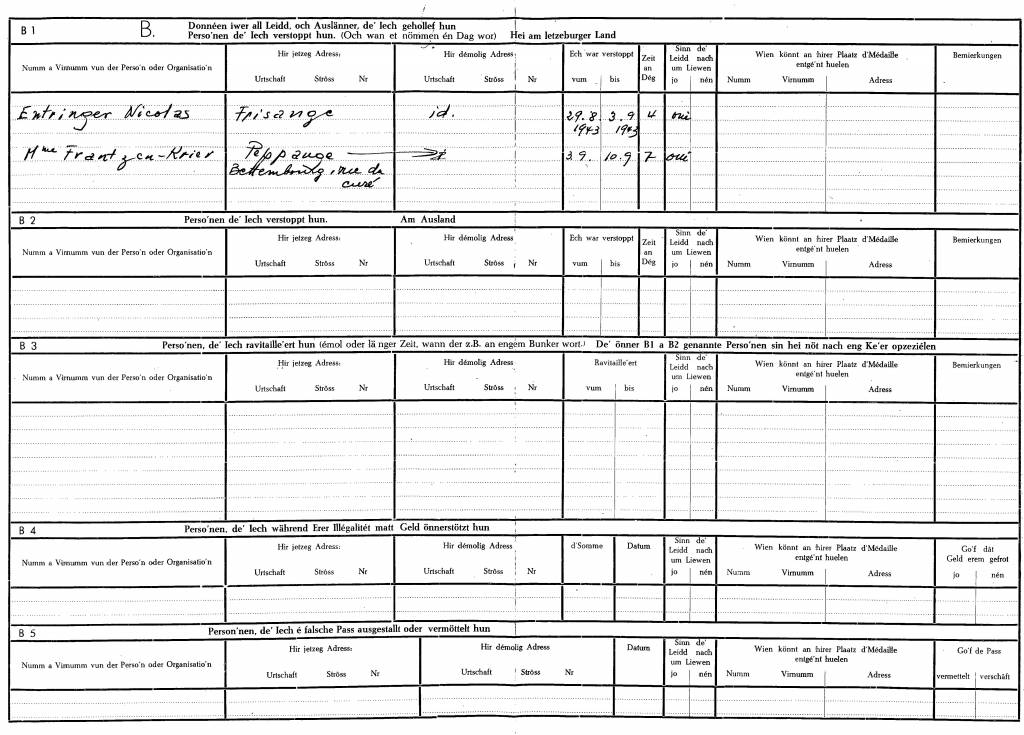 B 1 B. Donnéen iwer all Leidd, och Auslänner, de' Iech gehollef hun
Perso'nen de' Iech verstoppt hun. (Och wan et nömmen én Dag wor) Hei am letzeburger Land
Numm a Virnumm vun der Perso'n oder Organisatio'n
Hir jetzeg Adress:
Urtschaft Ströss Nr
Hir démolig Adress:
Urtschaft Ströss Nr
Ech war verstoppt
vum bis
Zeit
an
Dég
Sinn de'
Leidd nach
um Liewen
jo nén
Wien könnt an hirer Plaatz d'Médaille
entgé'nt huelen
Numm Virnumm Adress
Bemierkungen
Entringer Nicolas Frisange id. 29.8. 3.9 4 oui
1943 1943
Mme Frantzen-Krier Peppange 3.9. 10.9 7 oui
Bettembourg, rue du
curé
B 2 Perso'nen de' Iech verstoppt hun. Am Ausland
Numm a Virnumm vun der Perso'n oder Organisatio'n
Hir jetzeg Adress:
Urtschaft Ströss Nr
Hir démolig Adress
Urtschaft Ströss Nr
Ech war verstoppt
vum bis
Zeit
an
Dég
Sinn de'
Leidd nach
um Liewen
jo nén
Wien könnt an hirer Plaatz d'Médaille
entgé'nt huelen
Numm Virnumm Adress
Bemierkungen
B 3 Perso'nen, de' Iech ravitaille'ert hun (émol oder länger Zeit, wann der z.B. an engem Bunker wort.) De' önner B1 a B2 genannte Perso'nen sin hei nöt nach eng Ke'er opzeziélen
Numm a Virnumm vun der Perso'n oder Organisatio'n
Hir jetzeg Adress:
Urtschaft Ströss Nr
Hir démolig Adress
Urtschaft Ströss Nr
Ravitaille'ert
vum bis
Sinn de'
Leidd nach
um Liewen
jo nén
Wien könnt an hirer Plaatz d'Médaille
entgé'nt huelen
Numm Virnumm Adress
Bemierkungen
B 4 Perso'nen, de' Iech während Erer Illégalitét matt Geld önnerstötzt hun
Numm a Virnumm vun der Perso'n oder Organisatio'n
Hir jetzeg Adress:
Urtschaft Ströss Nr
Hir démolig Adress
Urtschaft Ströss Nr
d'Somme
Datum
Sinn de'
Leidd nach
um Liewen
jo nén
Wien könnt an hirer Plaatz d'Médaille
entgé'nt huelen
Numm Virnumm Adress
Go'f dât
Geld erem gefrot
jo nén
B 5 Person'nen, de' Iech é falsche Pass ausgestallt oder vermöttelt hun
Numm a Virnumm vun der Perso'n oder Organisatio'n
Hir jetzeg Adress:
Urtschaft Ströss Nr
Hir démolig Adress
Urtschaft Ströss Nr
Datum
Sinn de'
Leidd nach
um Liewen
jo nén
Wien könnt an hirer Plaatz d'Médaille
entgé'nt huelen
Numm Virnumm Adress
Go'f de Pass
vermettelt verschâft